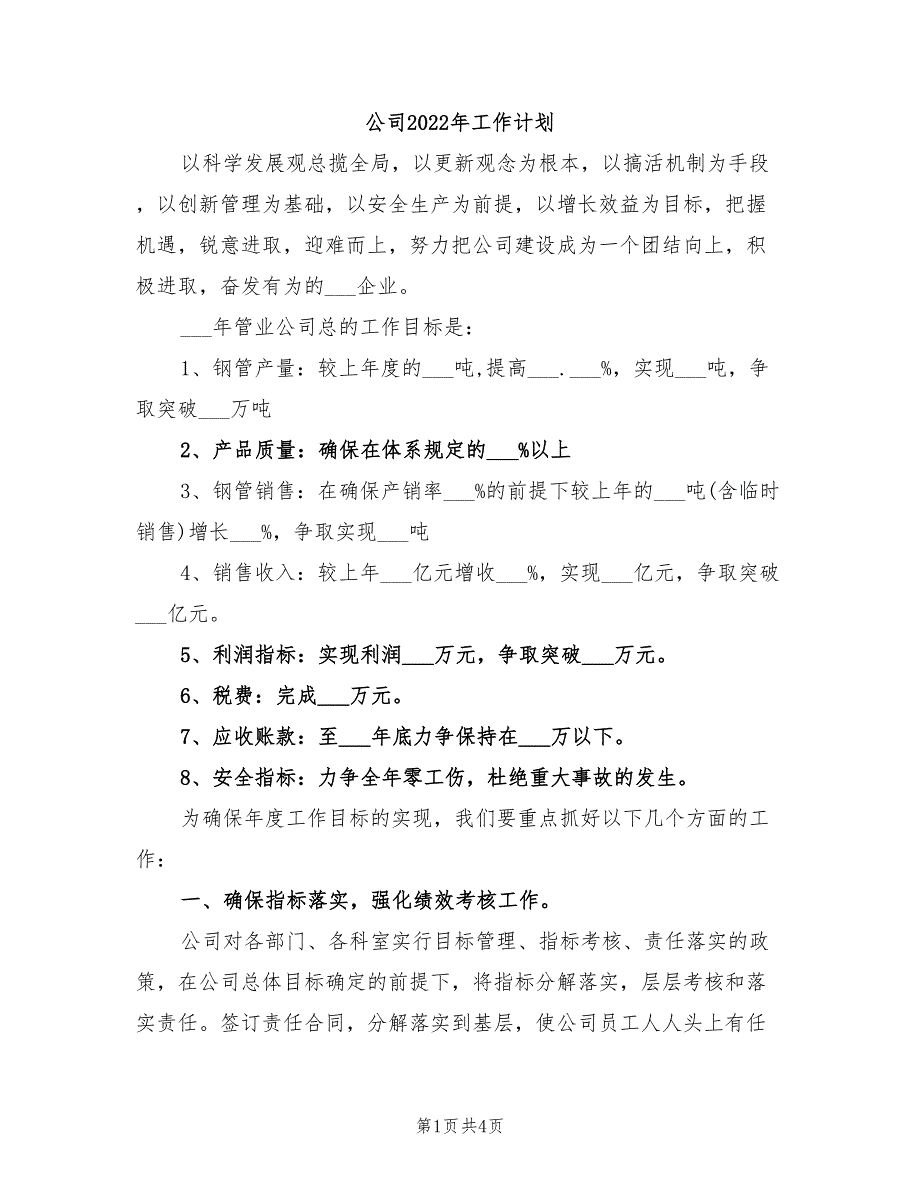 公司2022年工作计划
以科学发展观总揽全局，以更新观念为根本，以搞活机制为手段
，以创新管理为基础，以安全生产为前提，以增长效益为目标，把握
机遇，锐意进取，迎难而上，努力把公司建设成为一个团结向上，积
极进取，奋发有为的___企业。
___年管业公司总的工作目标是：
1、钢管产量：较上年度的___吨,提高___.___%，实现___吨，争
取突破___万吨
2、产品质量：确保在体系规定的___%以上
3、钢管销售：在确保产销率___%的前提下较上年的___吨(含临时
销售)增长___%，争取实现___吨
4、销售收入：较上年___亿元增收___%，实现___亿元，争取突破
___亿元。
5、利润指标：实现利润___万元，争取突破___万元。
6、税费：完成___万元。
7、应收账款：至___年底力争保持在___万以下。
8、安全指标：力争全年零工伤，杜绝重大事故的发生。
为确保年度工作目标的实现，我们要重点抓好以下几个方面的工
作：
一、确保指标落实，强化绩效考核工作。
公司对各部门、各科室实行目标管理、指标考核、责任落实的政
策，在公司总体目标确定的前提下，将指标分解落实，层层考核和落
实责任。签订责任合同，分解落实到基层，使公司员工人人头上有任
第1页共4页